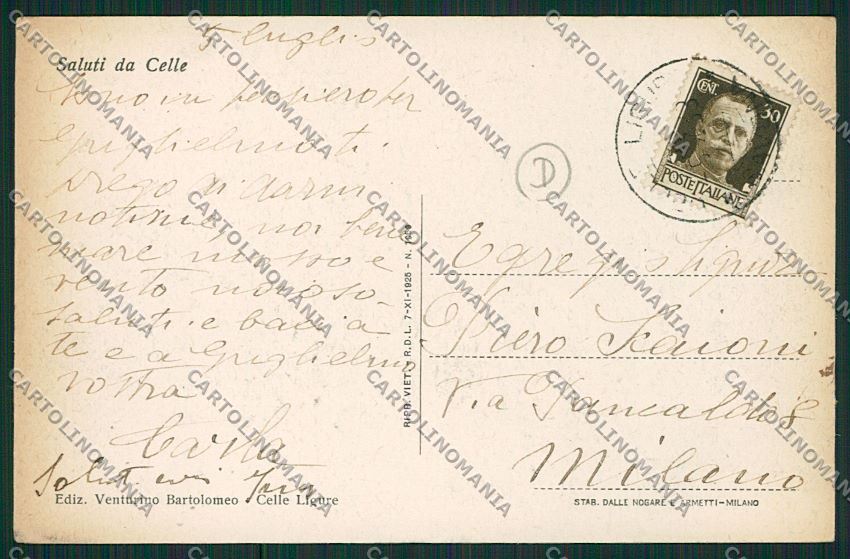 5 luglio
Saluti da Celle
Sono in pensiero per
Guglielmo ti
prego di darmi
notizie, noi bene
mare mosso e
vento noioso.
saluti e baci a
te e a Guglielmo
vostra
Carla
Ediz. Venturino Bartolomeo - Celle Ligure
RIPR. VIET. R.D.L. 7-XI-1925 - N.
D
CENT. 30
POSTE ITALIANE
Egregio Signor
Piero Scaioni
Via Pancaldo 8
Milano
STAB. DALLE NOGARE E ARMETTI - MILANO
CARTOLINOMANIA